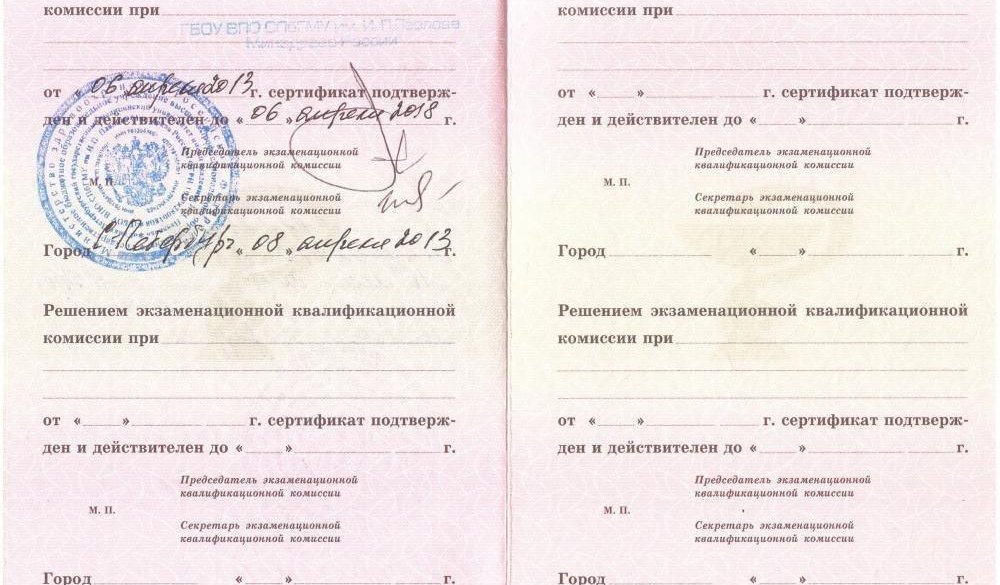 комиссии при
ГБОУ ВПО СПбГМУ им. И.П.Павлова
Минздрава России
от « 06 апреля 2013 г. сертификат подтверж-
ден и действителен до « 06 » апреля 2018 г.
Председатель экзаменационной
квалификационной комиссии
М. П.
Секретарь экзаменационной
квалификационной комиссии
Город С-Петербург « 08 » апреля 2013 г.
Решением экзаменационной квалификационной
комиссии при
от « » г. сертификат подтверж-
ден и действителен до « » г.
Председатель экзаменационной
квалификационной комиссии
М. П.
Секретарь экзаменационной
квалификационной комиссии
Город « » г.
комиссии при
от « » г. сертификат подтверж-
ден и действителен до « » г.
Председатель экзаменационной
квалификационной комиссии
М. П.
Секретарь экзаменационной
квалификационной комиссии
Город « » г.
Решением экзаменационной квалификационной
комиссии при
от « » г. сертификат подтверж-
ден и действителен до « » г.
Председатель экзаменационной
квалификационной комиссии
М. П.
Секретарь экзаменационной
квалификационной комиссии
Город « » г.